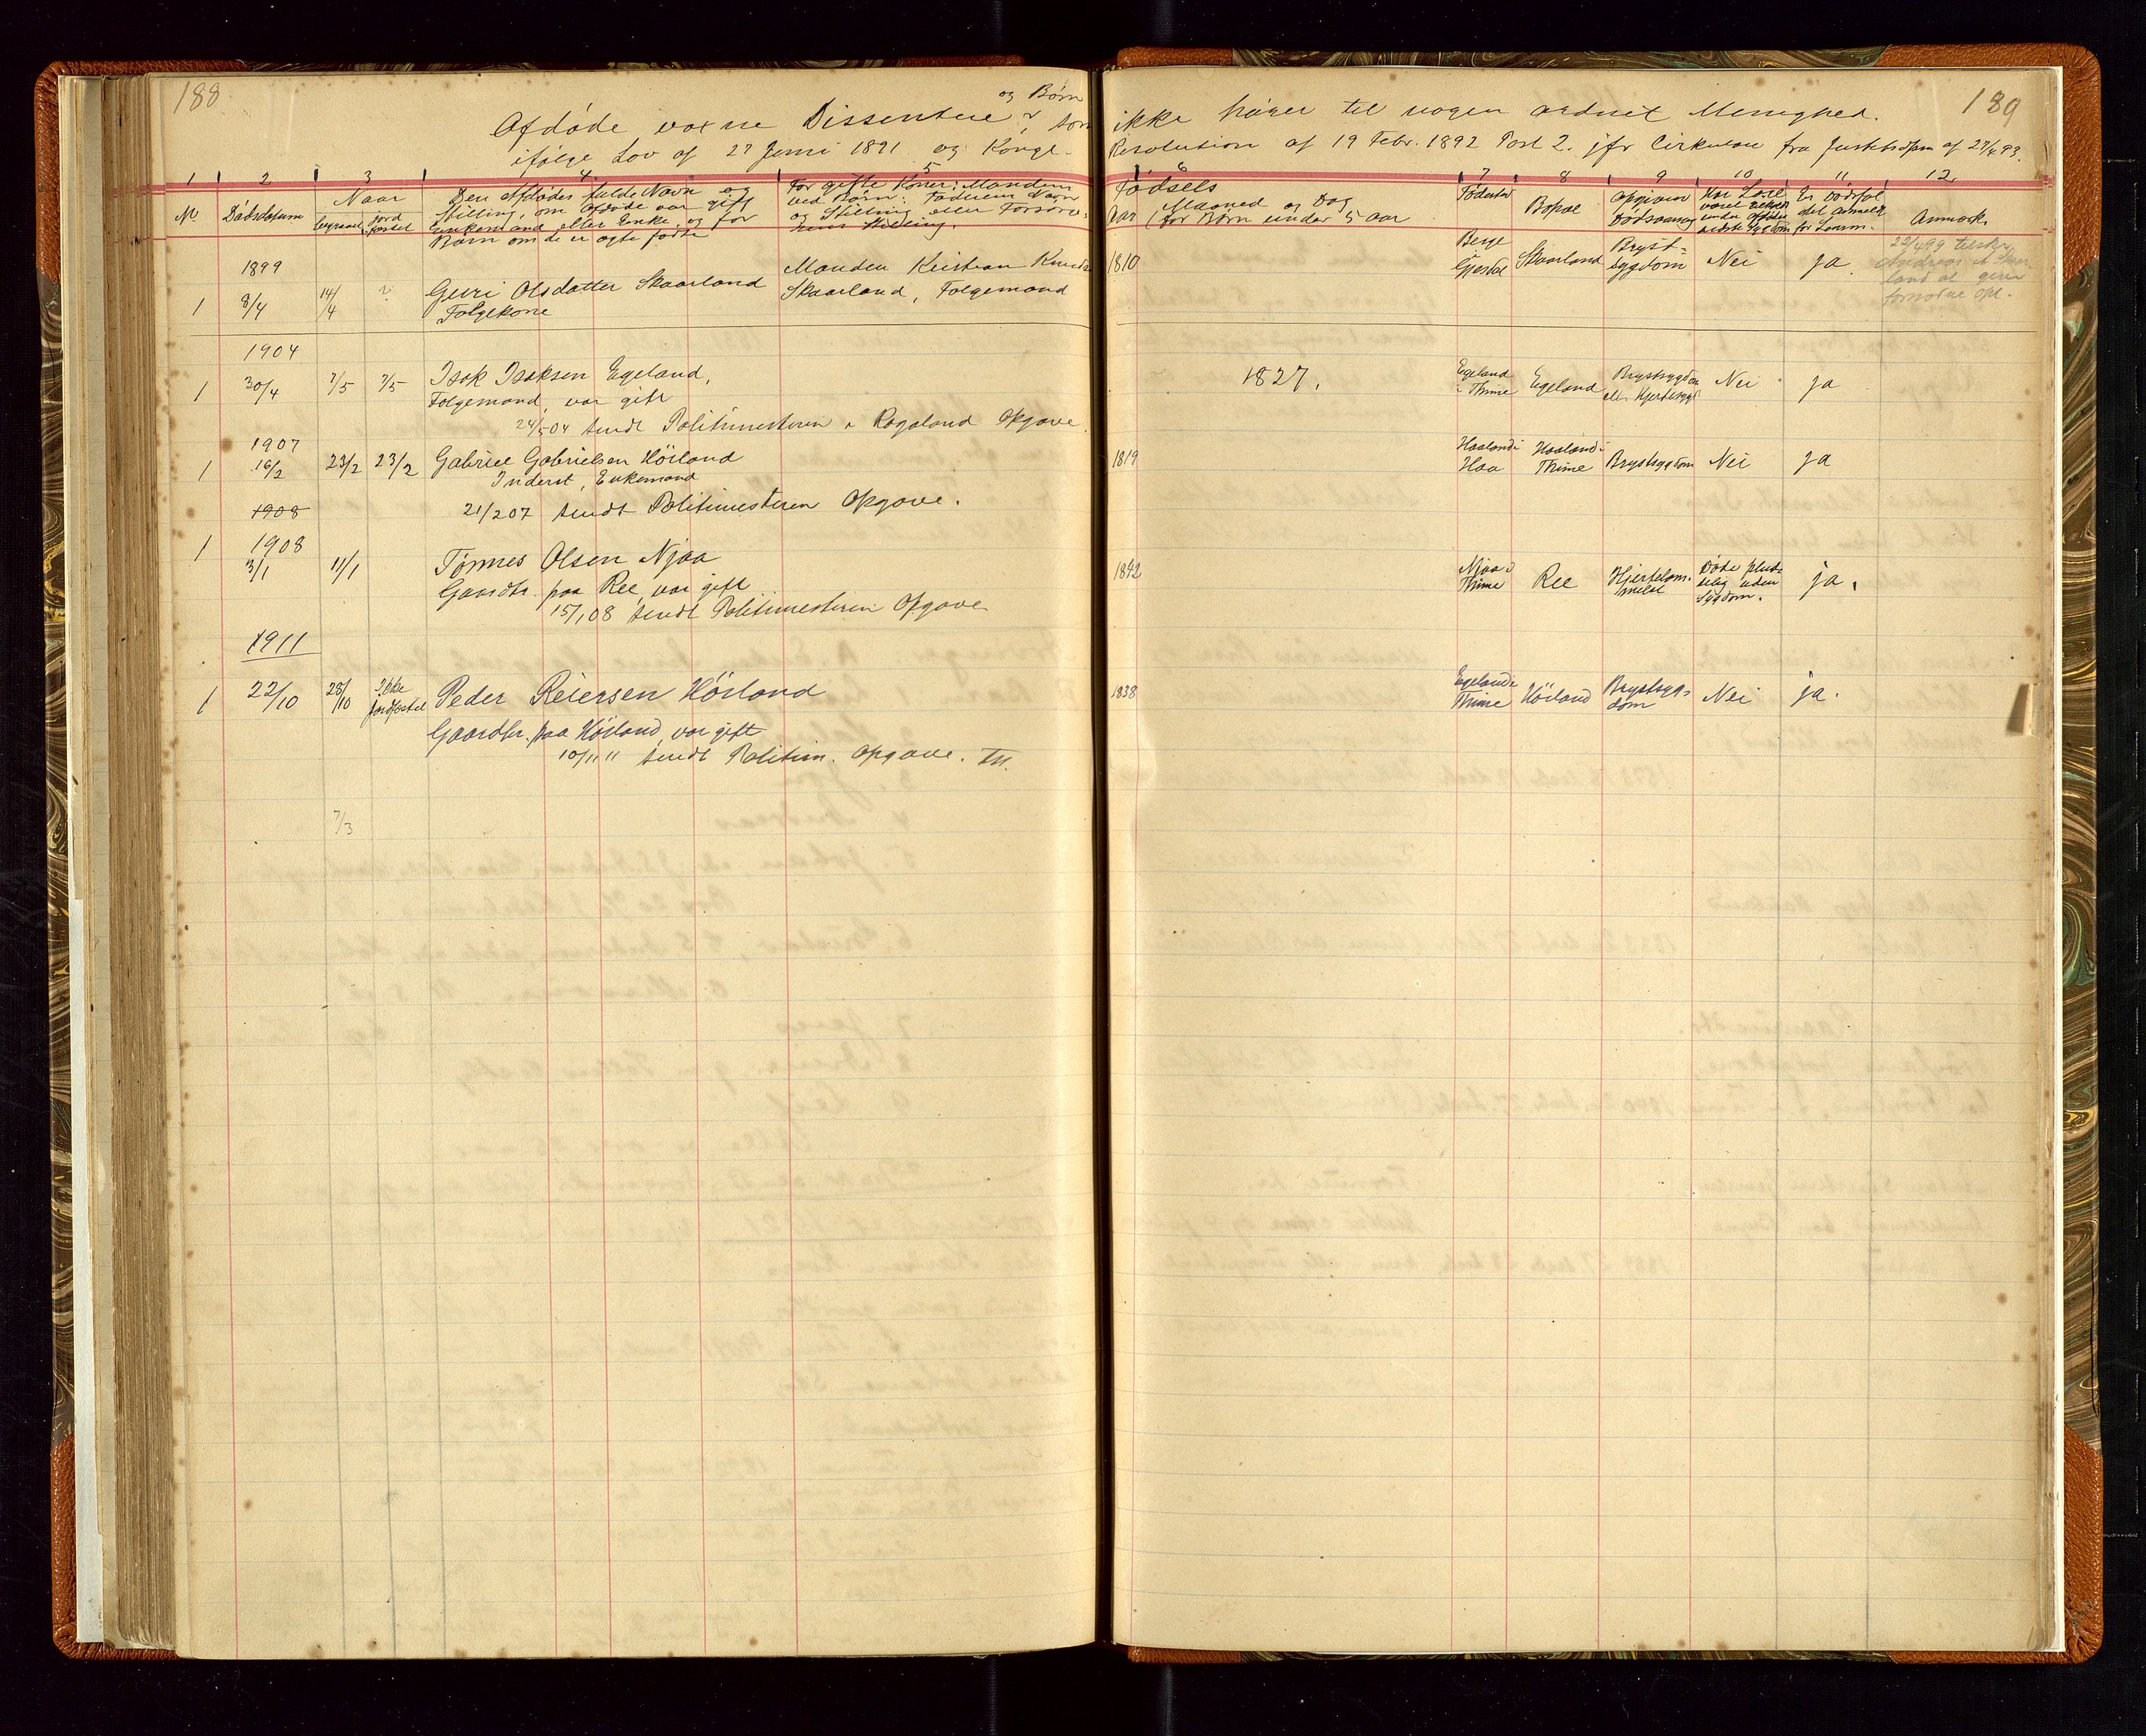 188
189
og Børn
Afdøde voxne Dissentere, som ikke hører til nogen ordnet Menighed.
ifølge Lov af 27 Juni 1891 og Kongl. Resolution af 19 Febr. 1892 Post 2. jfr Cirkulær fra Justitsdpm af 27/4 93.
1 2 3 4 5 6 7 8 9 10 11 12.
№
Dødsdatum
Naar
begravet
jord fæstet
Den Afdødes fulde Navn og
Stilling, om Afdøde var gift
Enkemand eller Enke, og for
Børn om de er ægte fødte
For gifte Koner: Mandens
ved Børn: Faderens Navn
og Stilling eller Forsørge-
rens Stilling.
Fødsels
Aar
Maaned og Dag
(for Børn under 5 Aar
Fødested
Bopæl
Opgiven
Dødsaarsag
Har Læge
været
under Afdødes
sidste Sygdom
Er Dødsfal
det anmeldt
for Lensm.
Anmærk.
1899
1 8/4 14/4 ? Guri Olsdatter Skaarland
Folgekone
Manden Kristian Knuds
Skaarland, Folgemand
1810
Berge
Gjesdal
Skaarland
Bryst-
sygdom
Nei
ja.
22/4 99 tilskr.
Andreas
land at give
fornødne Opl.
1904
1 30/4 7/5 7/5 Isak Isaksen Egeland,
Folgemand, var gift
1827.
Egeland
i Thime
Egeland
Brystsygdom
ell. Hjertesygd
Nei
ja
24/5 04 sendt Politimesteren i Rogaland Opgave.
1907
1 16/2 23/2 23/2 Gabriel Gabrielsen Hörland
Inderst, Enkemand
1819
Haaland i
Haa
Haaland i
Thime
Brystsygdom
Nei
ja
21/2 07 sendt Politimesteren Opgave.
1908
1908
1 3/1 11/1 Tønnes Olsen Njaa
Gaardbr. paa Ree, var gift
1842
Njaa i
Thime
Ree
Hjertelam-
melse
Døde plud-
selig uden
Sygdom.
ja.
15/1 08 sendt Politimesteren Opgave
1911
1 22/10 28/10 Ikke
jordfæstet
Peder Reiersen Hörland
Gaardbr. paa Hörland, var gift
1838
Egeland i
Thime
Hörland
Brystsyg-
dom
Nei
ja.
10/11 11 sendt Politim. Opgave.
7/3